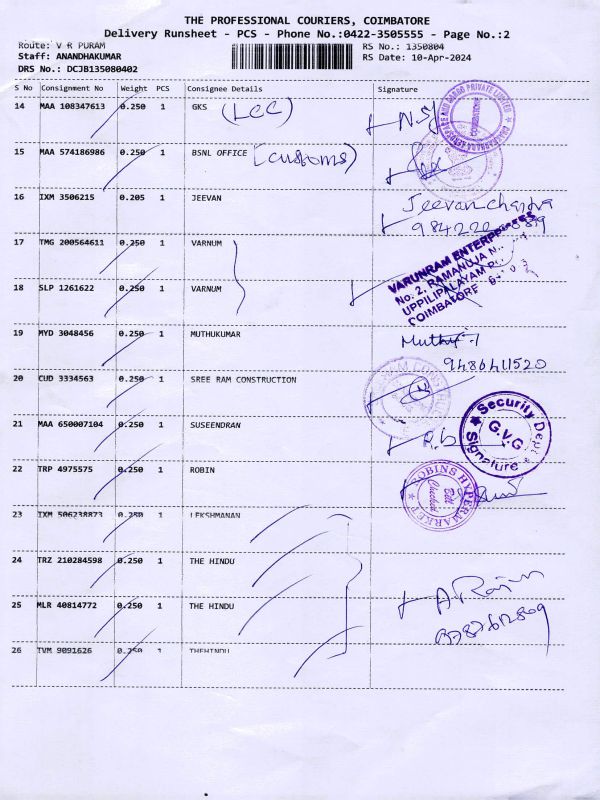 THE PROFESSIONAL COURIERS, COIMBATORE
Delivery Runsheet - PCS - Phone No.:0422-3505555 - Page No.:2
Route: V R PURAM RS No.: 1350804
Staff: ANANDHAKUMAR RS Date: 10-Apr-2024
DRS No.: DCJB135080402
S No Consignment No Weight PCS Consignee Details Signature
14 MAA 108347613 0.250 1 GKS (LCC)
15 MAA 574186986 0.250 1 BSNL OFFICE (customs)
16 IXM 3506215 0.205 1 JEEVAN Jeevan
17 TMG 200564611 0.250 1 VARNUM
VARUNRAM ENTERPRISES
No. 2, RAMANUJA
UPPILIPALAYAM
COIMBATORE
18 SLP 1261622 0.250 1 VARNUM
19 MYD 3048456 0.250 1 MUTHUKUMAR
20 CUD 3334563 0.250 1 SREE RAM CONSTRUCTION
21 MAA 650007104 0.250 1 SUSEENDRAN
Security Dept
G.V.G
Signature
22 TRP 4975575 0.250 1 ROBIN
ROBINS HYPERMARKET
23 IXM 506238873 0.250 1 LEKSHMANAN
24 TRZ 210284598 0.250 1 THE HINDU
25 MLR 40814772 0.250 1 THE HINDU
26 TVM 9091626 0.250 1 THEHINDU